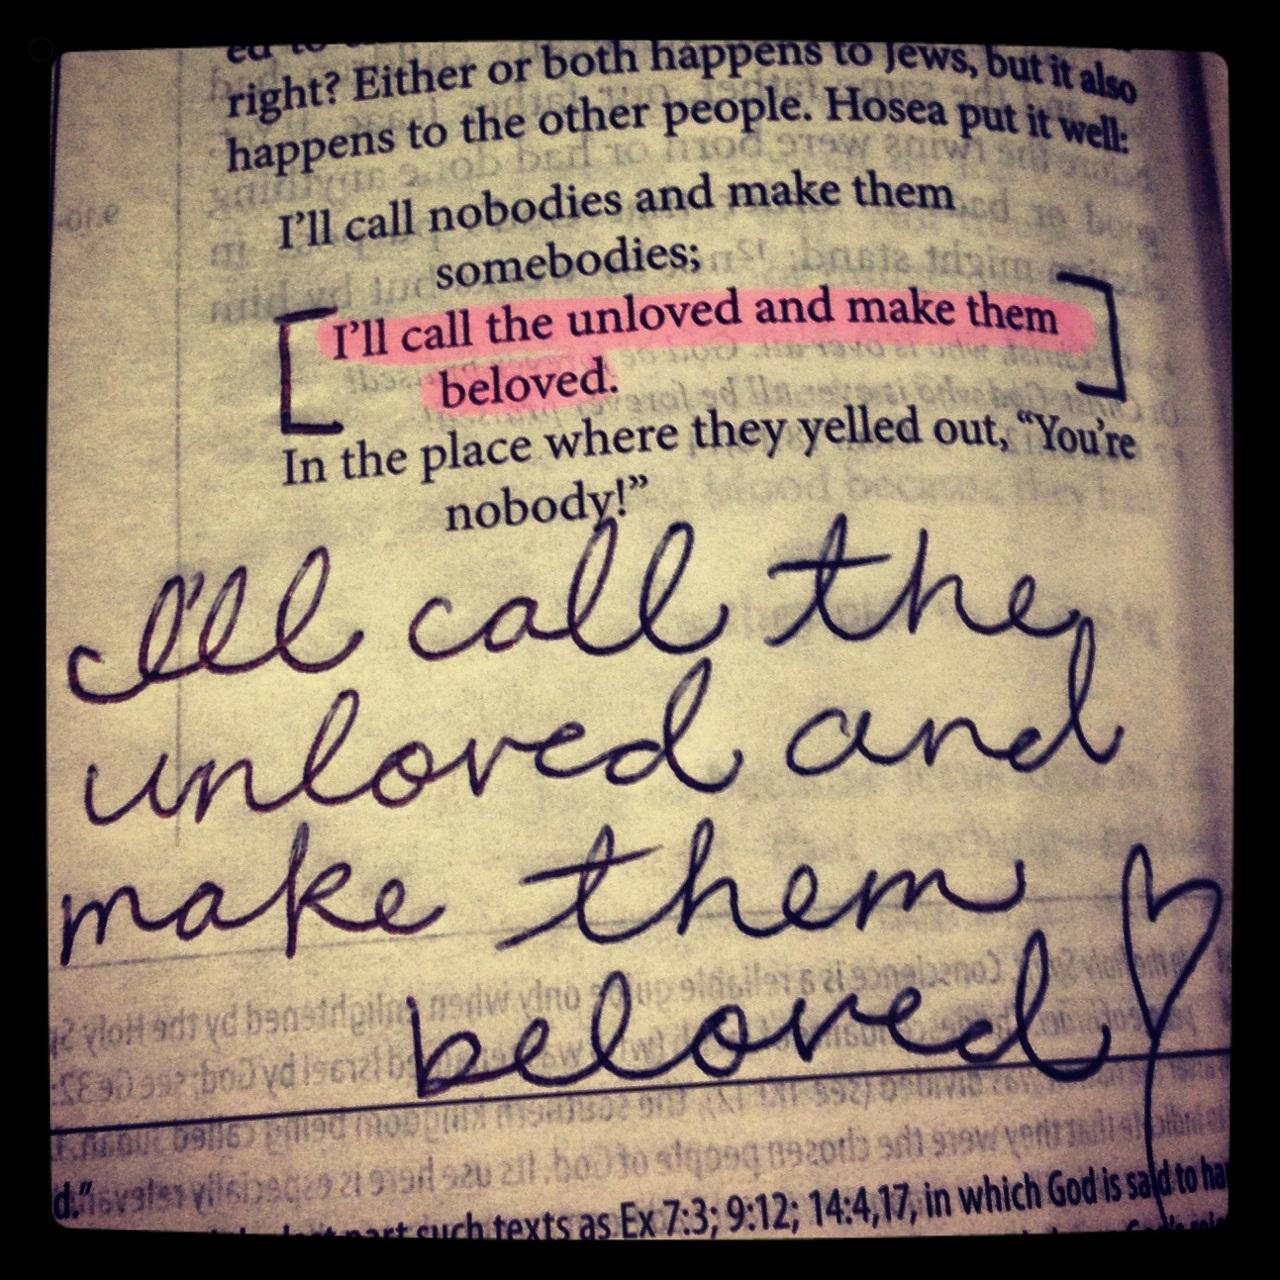 ed to
right? Either or both happens to Jews, but it also
happens to the other people. Hosea put it well:
I'll call nobodies and make them
somebodies;
I'll call the unloved and make them
beloved.
In the place where they yelled out, “You're
nobody!”
I'll call the
unloved and
make them
beloved
d.”
part such texts as Ex 7:3; 9:12; 14:4,17, in which God is said to